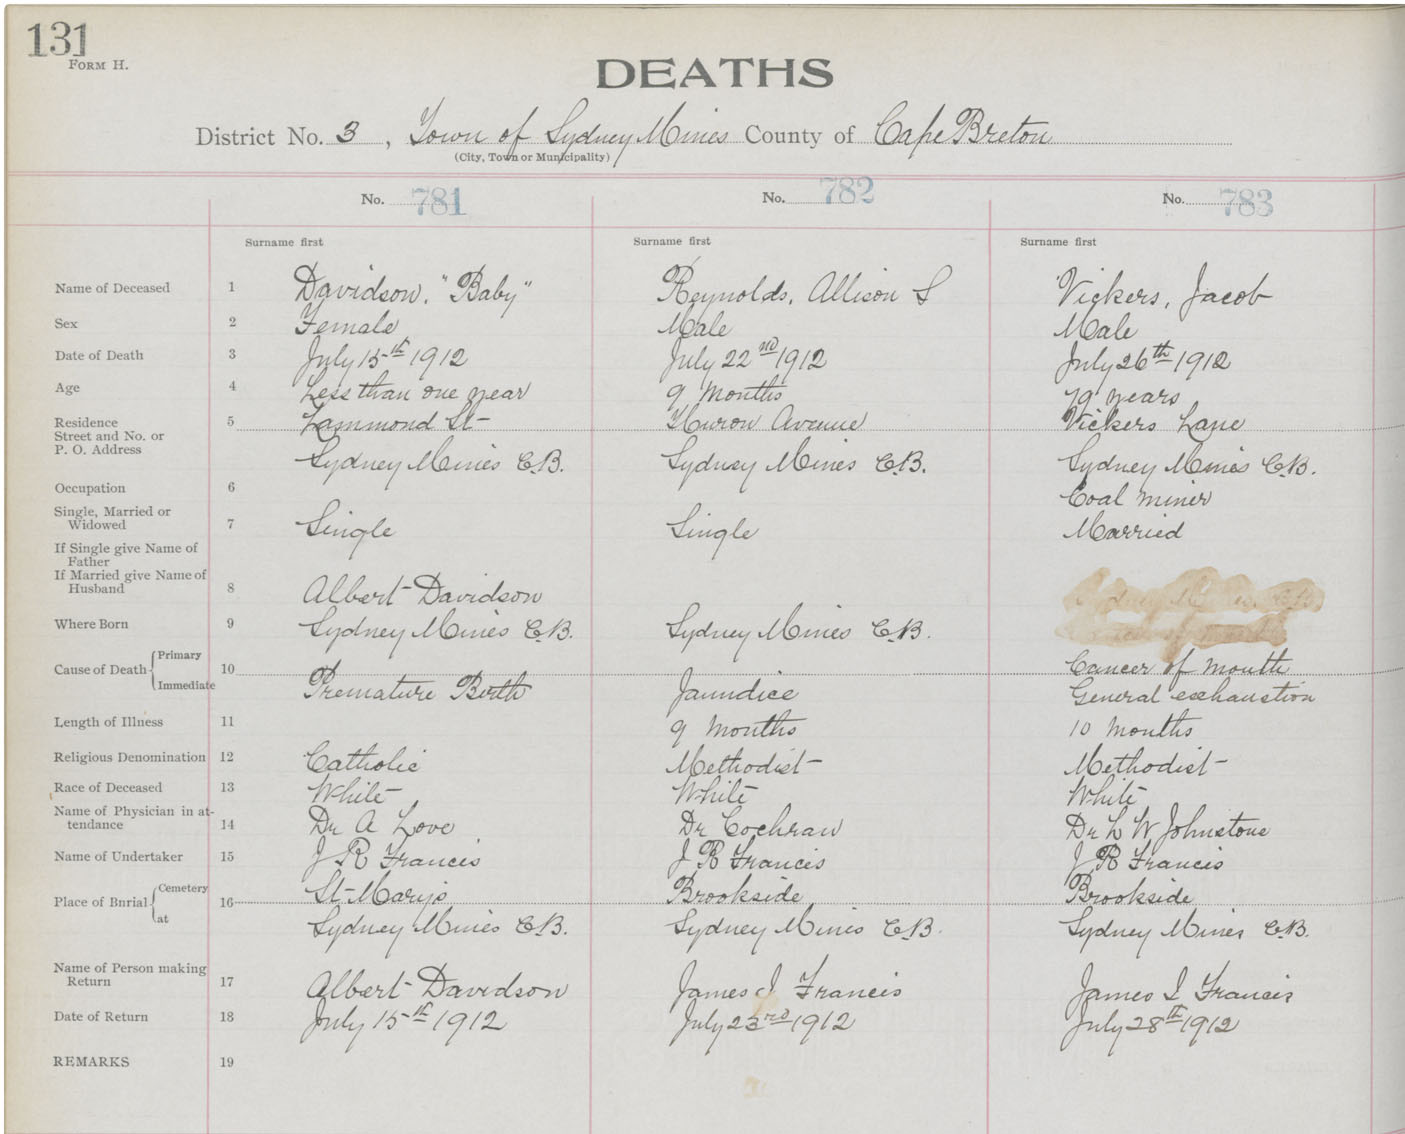 131
FORM H.
DEATHS
District No. 3, Town of Sydney Mines County of Cape Breton
(City, Town or Municipality)
No. 781 No. 782 No. 783
Surname first Surname first Surname first
Name of Deceased 1 Davidson, "Baby" Reynolds, Allison S Vickers, Jacob
Sex 2 Female Male Male
Date of Death 3 July 15th 1912 July 22nd 1912 July 26th 1912
Age 4 Less than one year 9 months 79 years
Residence 5 Lammond St Huron Avenue Vickers Lane
Street and No. or
P. O. Address Sydney Mines C.B. Sydney Mines C.B. Sydney Mines C.B.
Occupation 6 Coal miner
Single, Married or
Widowed 7 Single Single Married
If Single give Name of
Father
If Married give Name of
Husband 8 Albert Davidson Sydney Mines C.B.
Where Born 9 Sydney Mines C.B. Sydney Mines C.B. Cancer of mouth
Cause of Death Primary 10 Cancer of mouth
Immediate Premature Birth Jaundice General exhaustion
Length of Illness 11 9 months 10 months
Religious Denomination 12 Catholic Methodist Methodist
Race of Deceased 13 White White White
Name of Physician in at-
tendance 14 Dr A Love Dr Cochran Dr L W Johnstone
Name of Undertaker 15 J R Francis J R Francis J R Francis
Place of Burial Cemetery 16 St Mary's Brookside Brookside
at Sydney Mines C.B. Sydney Mines C.B. Sydney Mines C.B.
Name of Person making
Return 17 Albert Davidson James I Francis James I Francis
Date of Return 18 July 15th 1912 July 23rd 1912 July 28th 1912
REMARKS 19